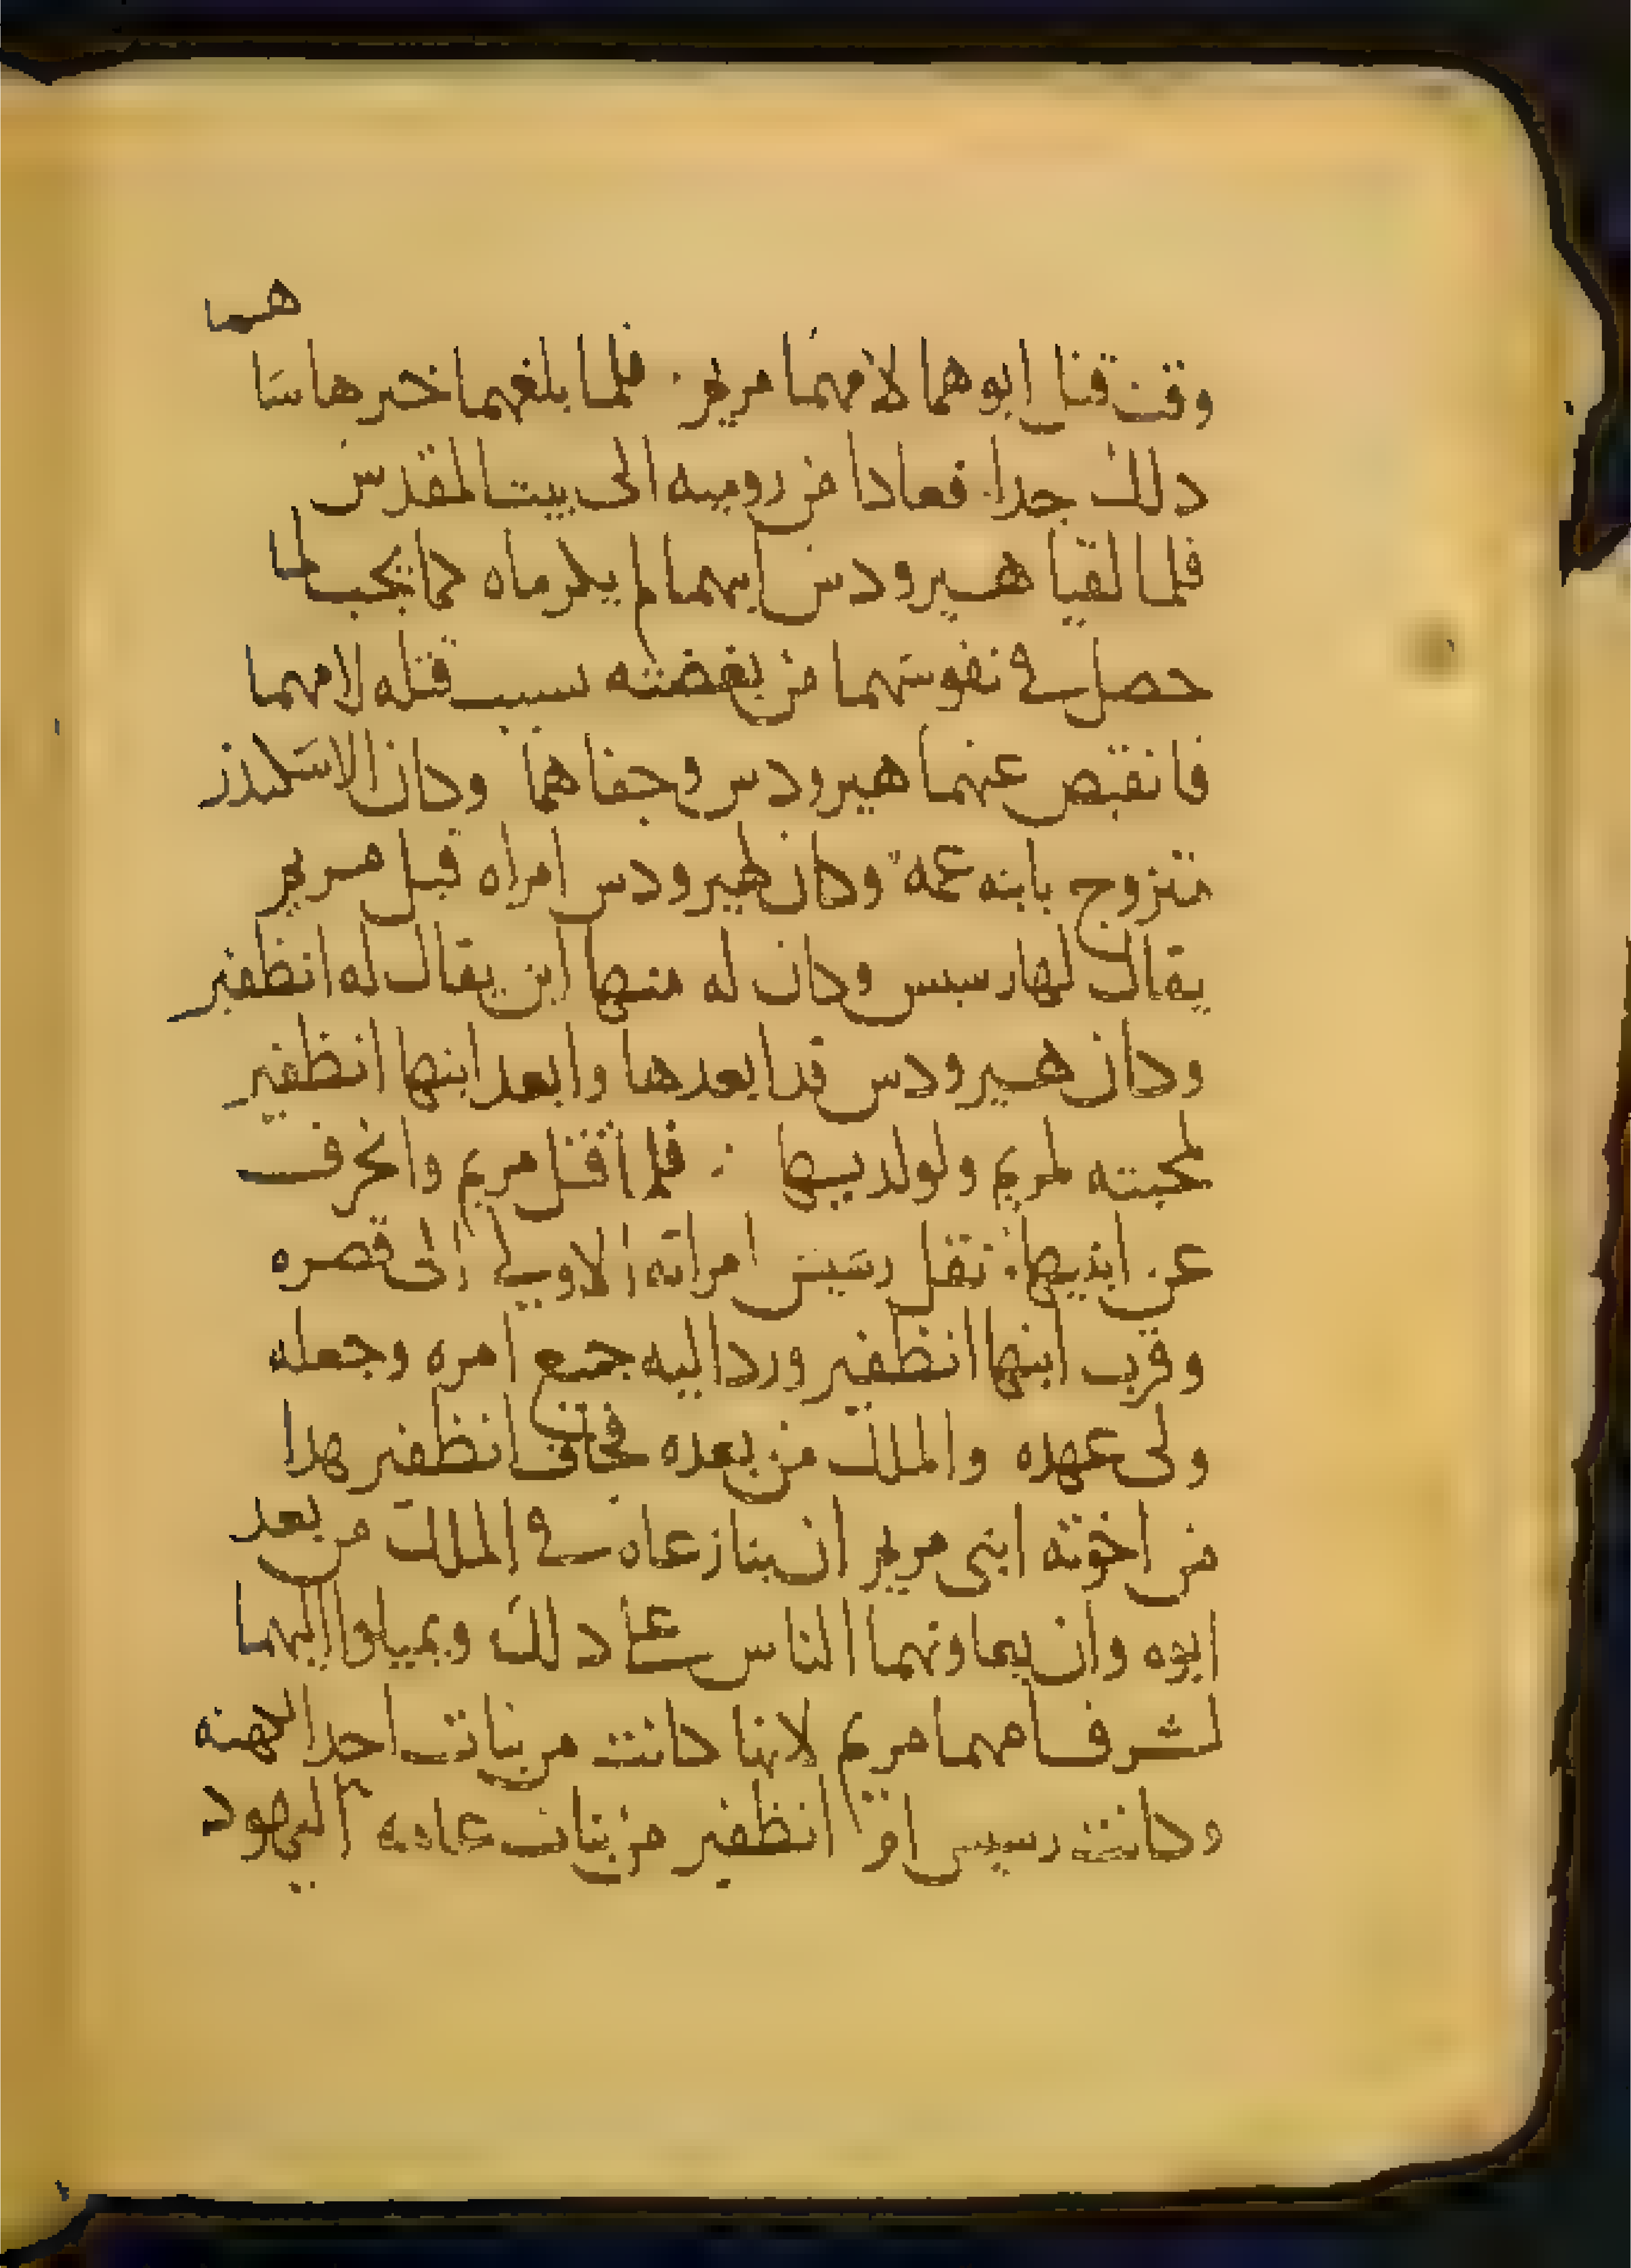 وقت قتل ابوهما لامهما مريم . فلما بلغهما خبرها سا هما
دلك جدا . فعادا من روميه الى بيت المقدس
فلما لقيا هيرودس ابيهما لم يكرماه كما يجب لما
حصل في نفوسهما من بغضته بسبب قتله لامهما
فانقبض عنهما هيرودس وجفاهما وكان الاسكندر
متزوج بابنه عمه وكان لهيرودس امراه قبل مريم
يقال لها رسيس وكان له منها ابن يقال له انظفير
وكان هيرودس قد ابعدها وابعد ابنها انظفير
لمحبته لمريم ولولديها . فلما قتل مريم وانحرف
عن ابنيها . نقل رسيس امراته الاولى الى قصره
وقرب ابنها انظفير ورد اليه جميع امره وجعله
ولى عهده والملك من بعده فخاف انظفير هدا
من اخوته ابنى مريم ان ينازعاه في الملك من بعد
ابوه وان يعاونهما الناس على دلك ويميلوا اليهما
لشرف امهما مريم لانها كانت من بنات احد الكهنه
وكانت رسيس ام انظفير من بنات عامه اليهود